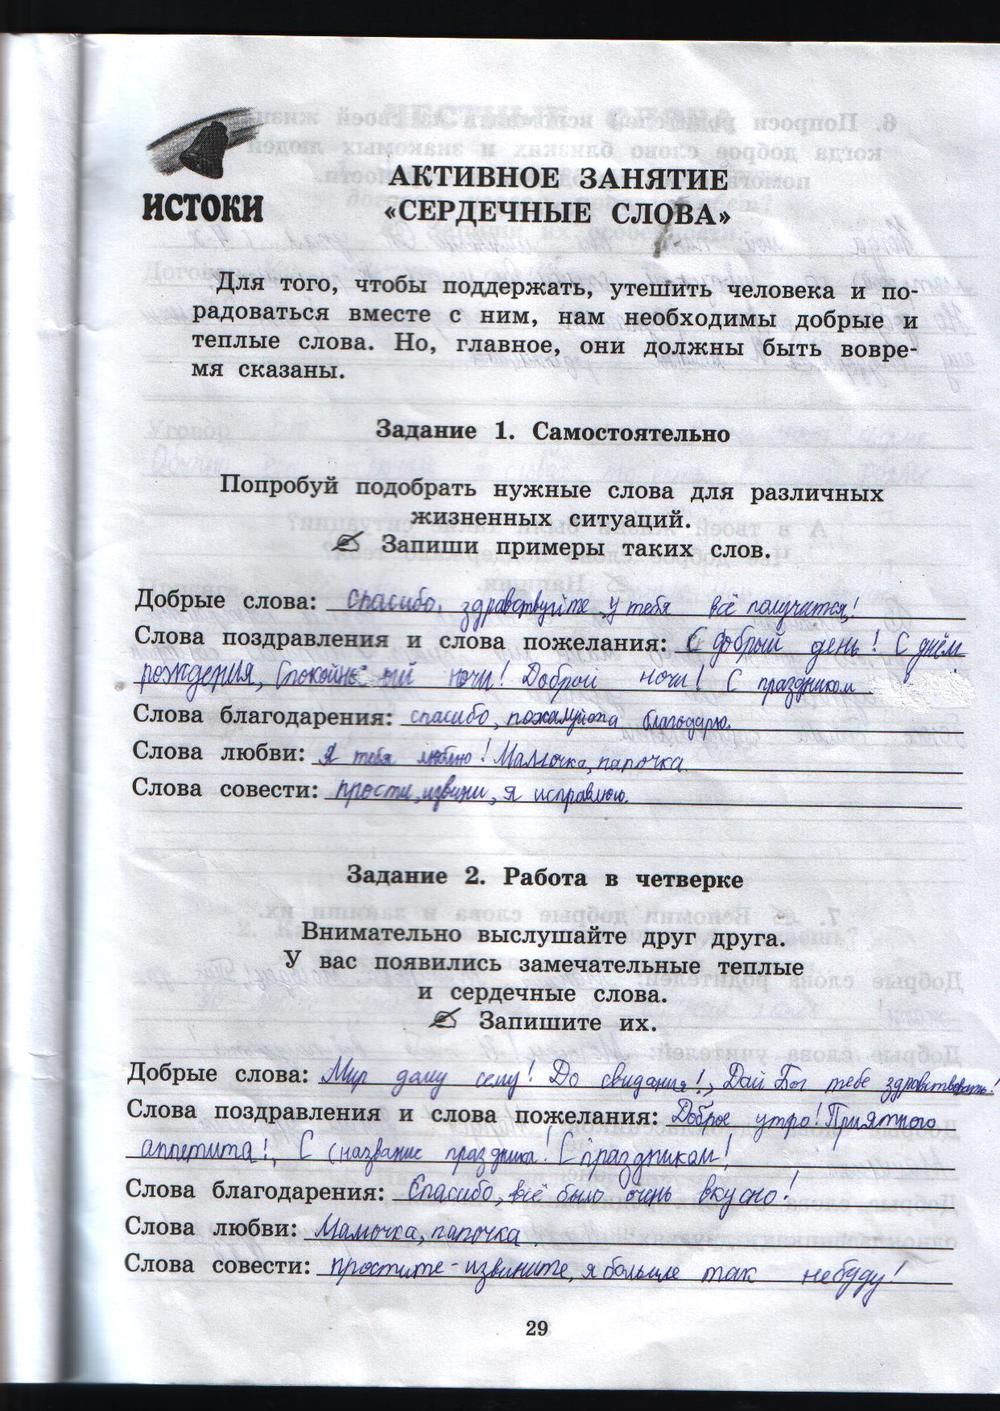 ИСТОКИ
АКТИВНОЕ ЗАНЯТИЕ
«СЕРДЕЧНЫЕ СЛОВА»
Для того, чтобы поддержать, утешить человека и по-
радоваться вместе с ним, нам необходимы добрые и
теплые слова. Но, главное, они должны быть вовре-
мя сказаны.
Задание 1. Самостоятельно
Попробуй подобрать нужные слова для различных
жизненных ситуаций.
Запиши примеры таких слов.
Добрые слова: спасибо, здравствуйте, у тебя всё получится!
Слова поздравления и слова пожелания: С добрый день! С днём
рождения, Спокойной ночи! Доброй ночи! С праздником
Слова благодарения: спасибо, пожалуйста благодарю.
Слова любви: Я тебя люблю! Мамочка, папочка
Слова совести: прости, извини, я исправлюсь.
Задание 2. Работа в четверке
Внимательно выслушайте друг друга.
У вас появились замечательные теплые
и сердечные слова.
Запишите их.
Добрые слова: Мир дому сему! До свидания!, Дай Бог тебе
Слова поздравления и слова пожелания: Доброе утро! Приятного
аппетита!, С (название праздника! С праздником!
Слова благодарения: Спасибо, всё было очень вкусно!
Слова любви: Мамочка, папочка
Слова совести: простите-извините, я больше так не буду!
29